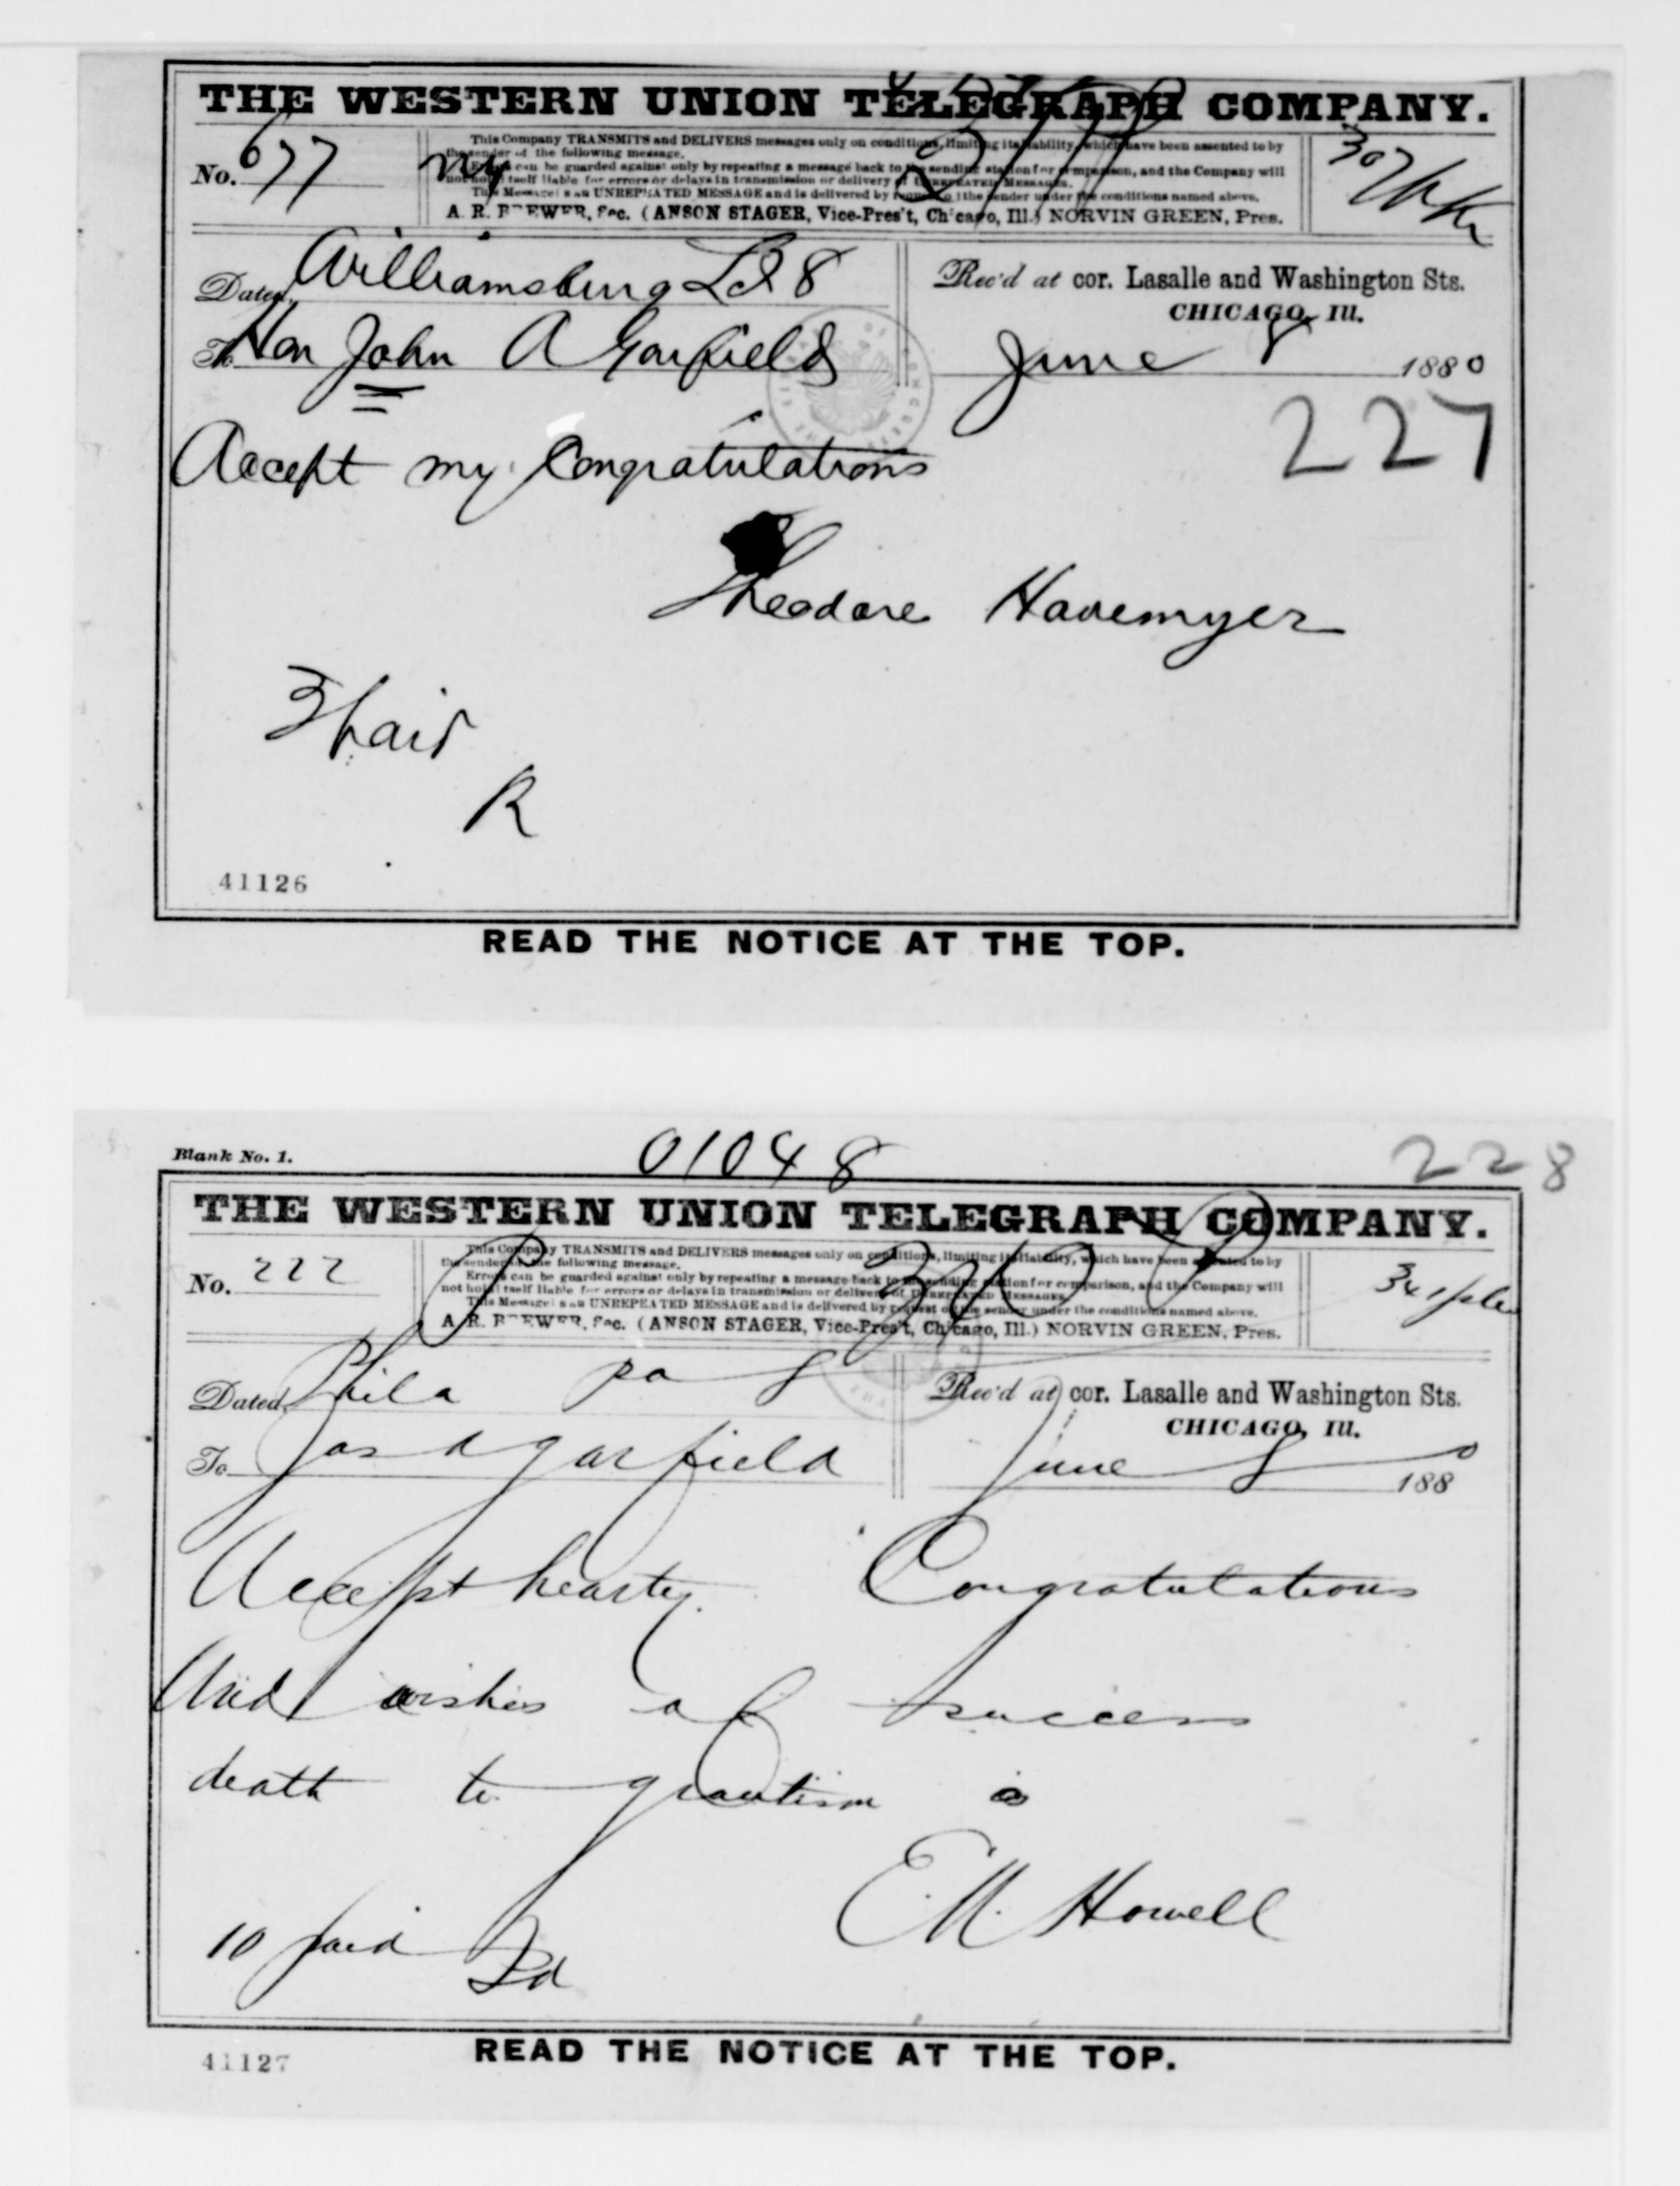 THE WESTERN UNION TELEGRAPH COMPANY.
No. 677
NY
This Company TRANSMITS and DELIVERS messages only on conditions, limiting its liability, which have been assented to by
the sender of the following message.
Errors can be guarded against only by repeating a message back to the sending station for comparison, and the Company will
not hold itself liable for errors or delays in transmission or delivery of UNREPEATED MESSAGES.
This Message is an UNREPEATED MESSAGE and is delivered by request of the sender under the conditions named above.
A. R. BREWER, Sec. (ANSON STAGER, Vice-Pres't, Chicago, Ill.) NORVIN GREEN, Pres.
Dated, Williamsburg LI 8
Rec'd at cor. Lasalle and Washington Sts.
CHICAGO, Ill.
To Hon John A Garfield
June 8 1880
227
Accept my Congratulations
Theodore Havemyer
3 paid
R
41126
READ THE NOTICE AT THE TOP.
Blank No. 1.
01048
228
THE WESTERN UNION TELEGRAPH COMPANY.
No. 222
This Company TRANSMITS and DELIVERS messages only on conditions, limiting its liability, which have been assented to by
the sender of the following message.
Errors can be guarded against only by repeating a message back to the sending station for comparison, and the Company will
not hold itself liable for errors or delays in transmission or delivery of UNREPEATED MESSAGES.
This Message is an UNREPEATED MESSAGE and is delivered by request of the sender under the conditions named above.
A. R. BREWER, Sec. (ANSON STAGER, Vice-Pres't, Chicago, Ill.) NORVIN GREEN, Pres.
Dated, Phila pa 8
Rec'd at cor. Lasalle and Washington Sts.
CHICAGO, Ill.
To Jas A Garfield
June 8 1880
Accept hearty Congratulations
And wishes of success
death to grantism
E. M. Howell
10 paid
41127
READ THE NOTICE AT THE TOP.